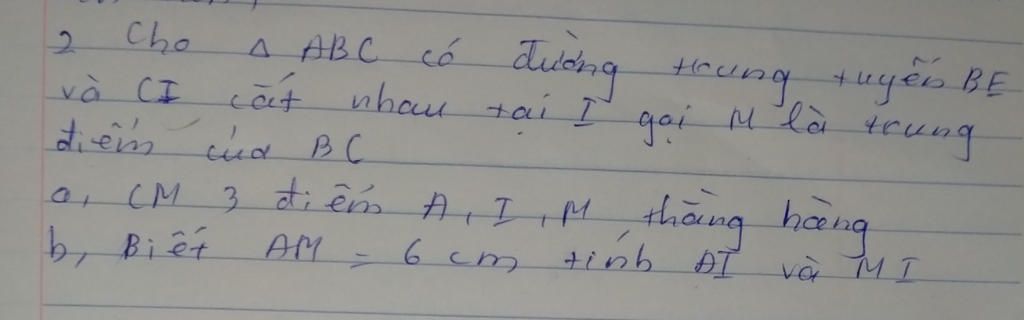 2 Cho Δ ABC có đường trung tuyến BE
và CI cắt nhau tại I gọi M là trung
điểm của BC
a, CM 3 điểm A, I, M thẳng hàng
b, Biết AM = 6 cm tính AI và MI